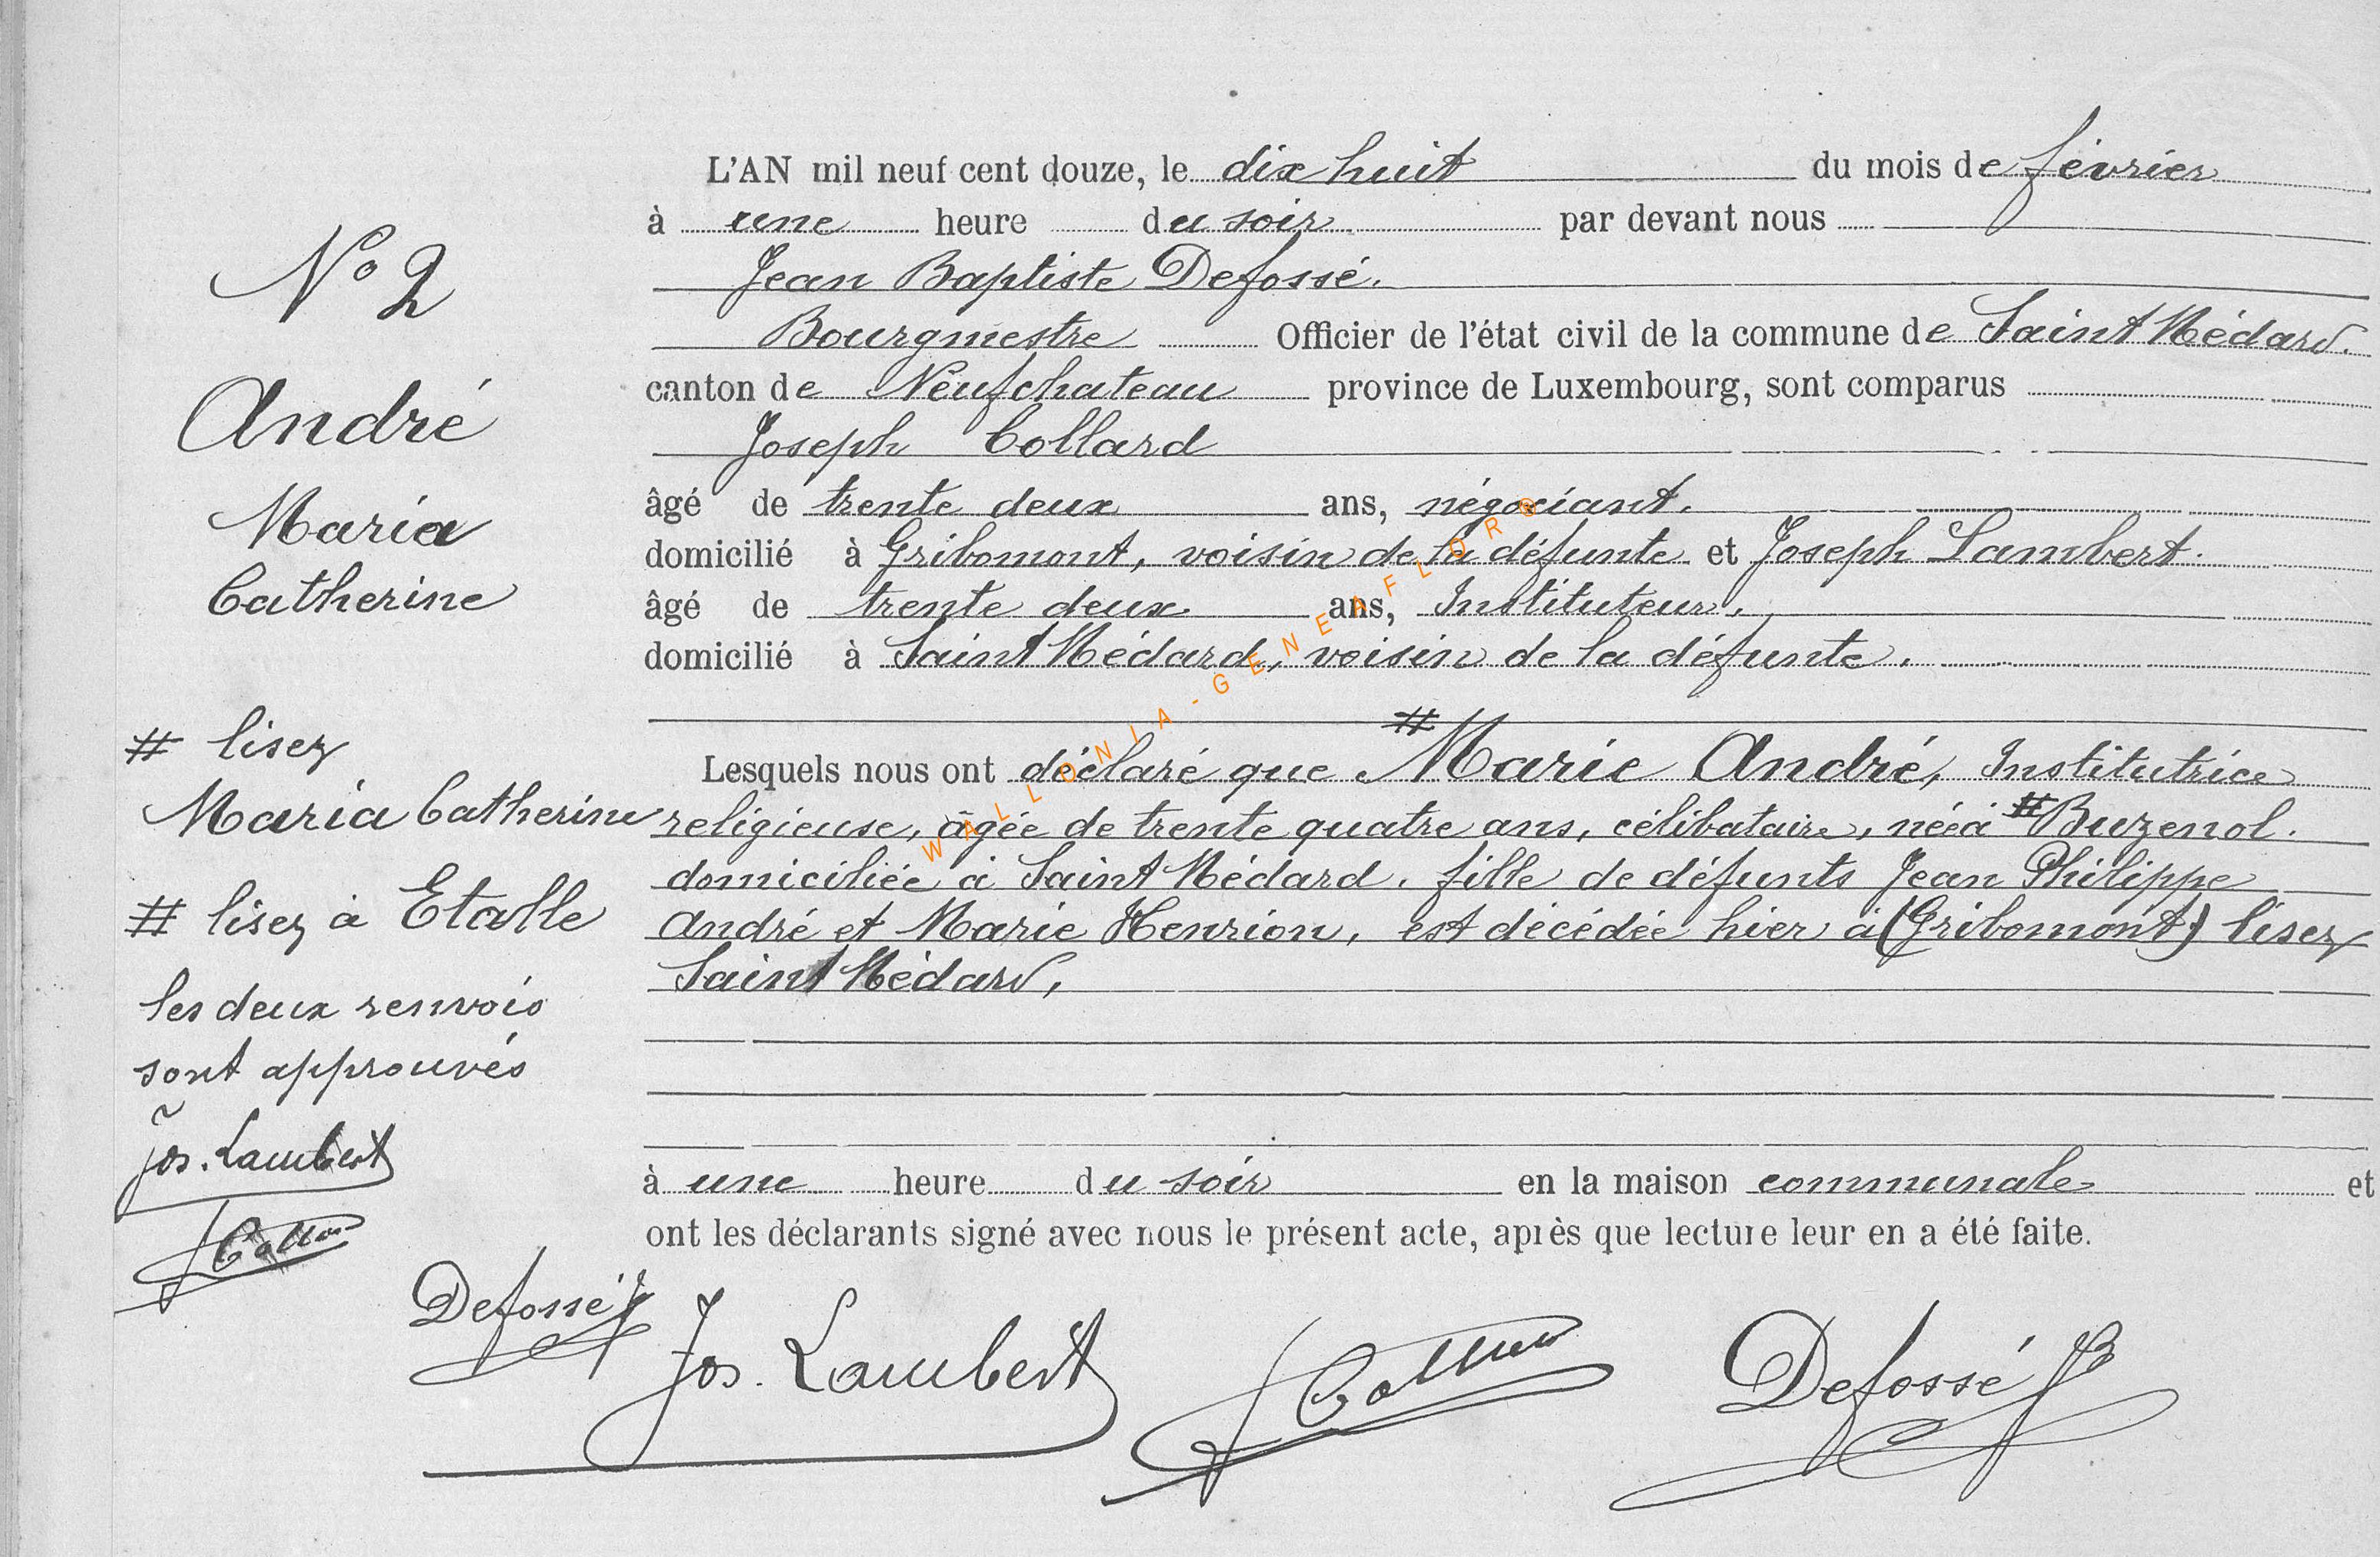 N° 2
André
Maria
Catherine
# lisez
Maria Catherine
# lisez à Etalle
les deux renvois
sont approuvés
Jos. Lambert
J Collard
Defossé
L'AN mil neuf cent douze, le dix huit du mois de février
à une heure du soir par devant nous
Jean Baptiste Defossé.
Bourgmestre Officier de l'état civil de la commune de Saint Médard.
canton de Neufchateau province de Luxembourg, sont comparus
Joseph Collard
âgé de trente deux ans, négociant.
domicilié à Gribomont, voisin de la défunte et Joseph Lambert.
âgé de trente deux ans, Instituteur,
domicilié à Saint Médard, voisin de la défunte.
Lesquels nous ont déclaré que # Marie André, Institutrice
religieuse, âgée de trente quatre ans, célibataire, née à # Buzenol.
domiciliée à Saint Médard. fille de défunts Jean Philippe
André et Marie Henrion, est décédée hier à (Gribomont) lisez
Saint Médard,
à une heure du soir en la maison communale et
ont les déclarants signé avec nous le présent acte, après que lecture leur en a été faite.
Jos. Lambert J Collard Defossé JB
WALLONIA-GENEAFLORE